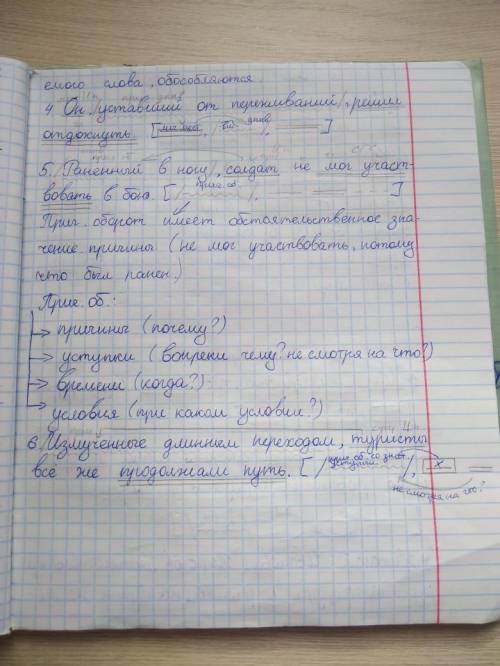 емого слова, обособляются.
4. Он, /уставший от переживаний/, решил
отдохнуть. [
5. /Раненный в ногу/, солдат не мог участ-
вовать в бою. [/прич. об./, ]
Прич. оборот имеет обстоятельственное зна-
чение причины (не мог участвовать, потому
что был ранен.)
Прич. об.:
→ причины (почему?)
→ уступки (вопреки чему? не смотря на что?)
→ времени (когда?)
→ условия (при каком условии?)
6. Измученные длинным переходом, туристы
всё же продолжали путь. [/прич. об. со знач. уступки/, х
не смотря на что?